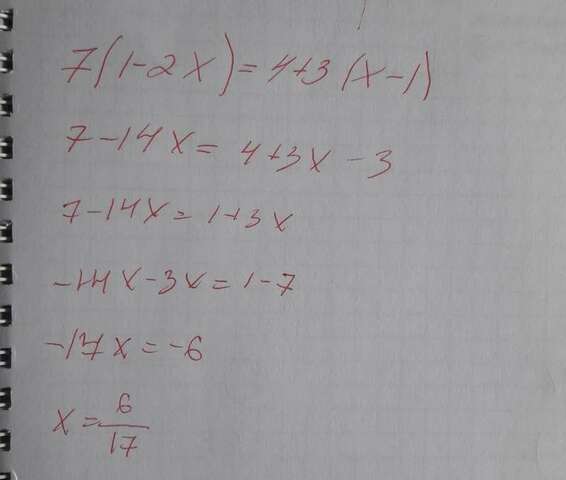 7(1-2x)=4+3(x-1)
7-14x=4+3x-3
7-14x=1+3x
-14x-3x=1-7
-17x=-6
x=6/17